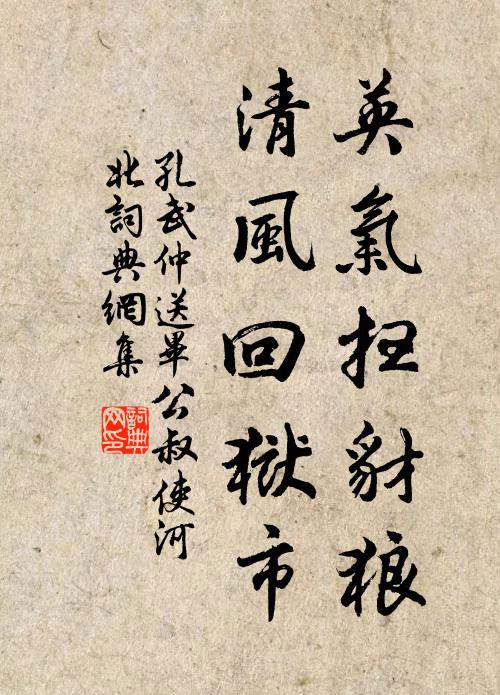 英氣扫豺狼
清風回獄市
孔武仲送畢公叔使河
北詞典網集
詞典
网印